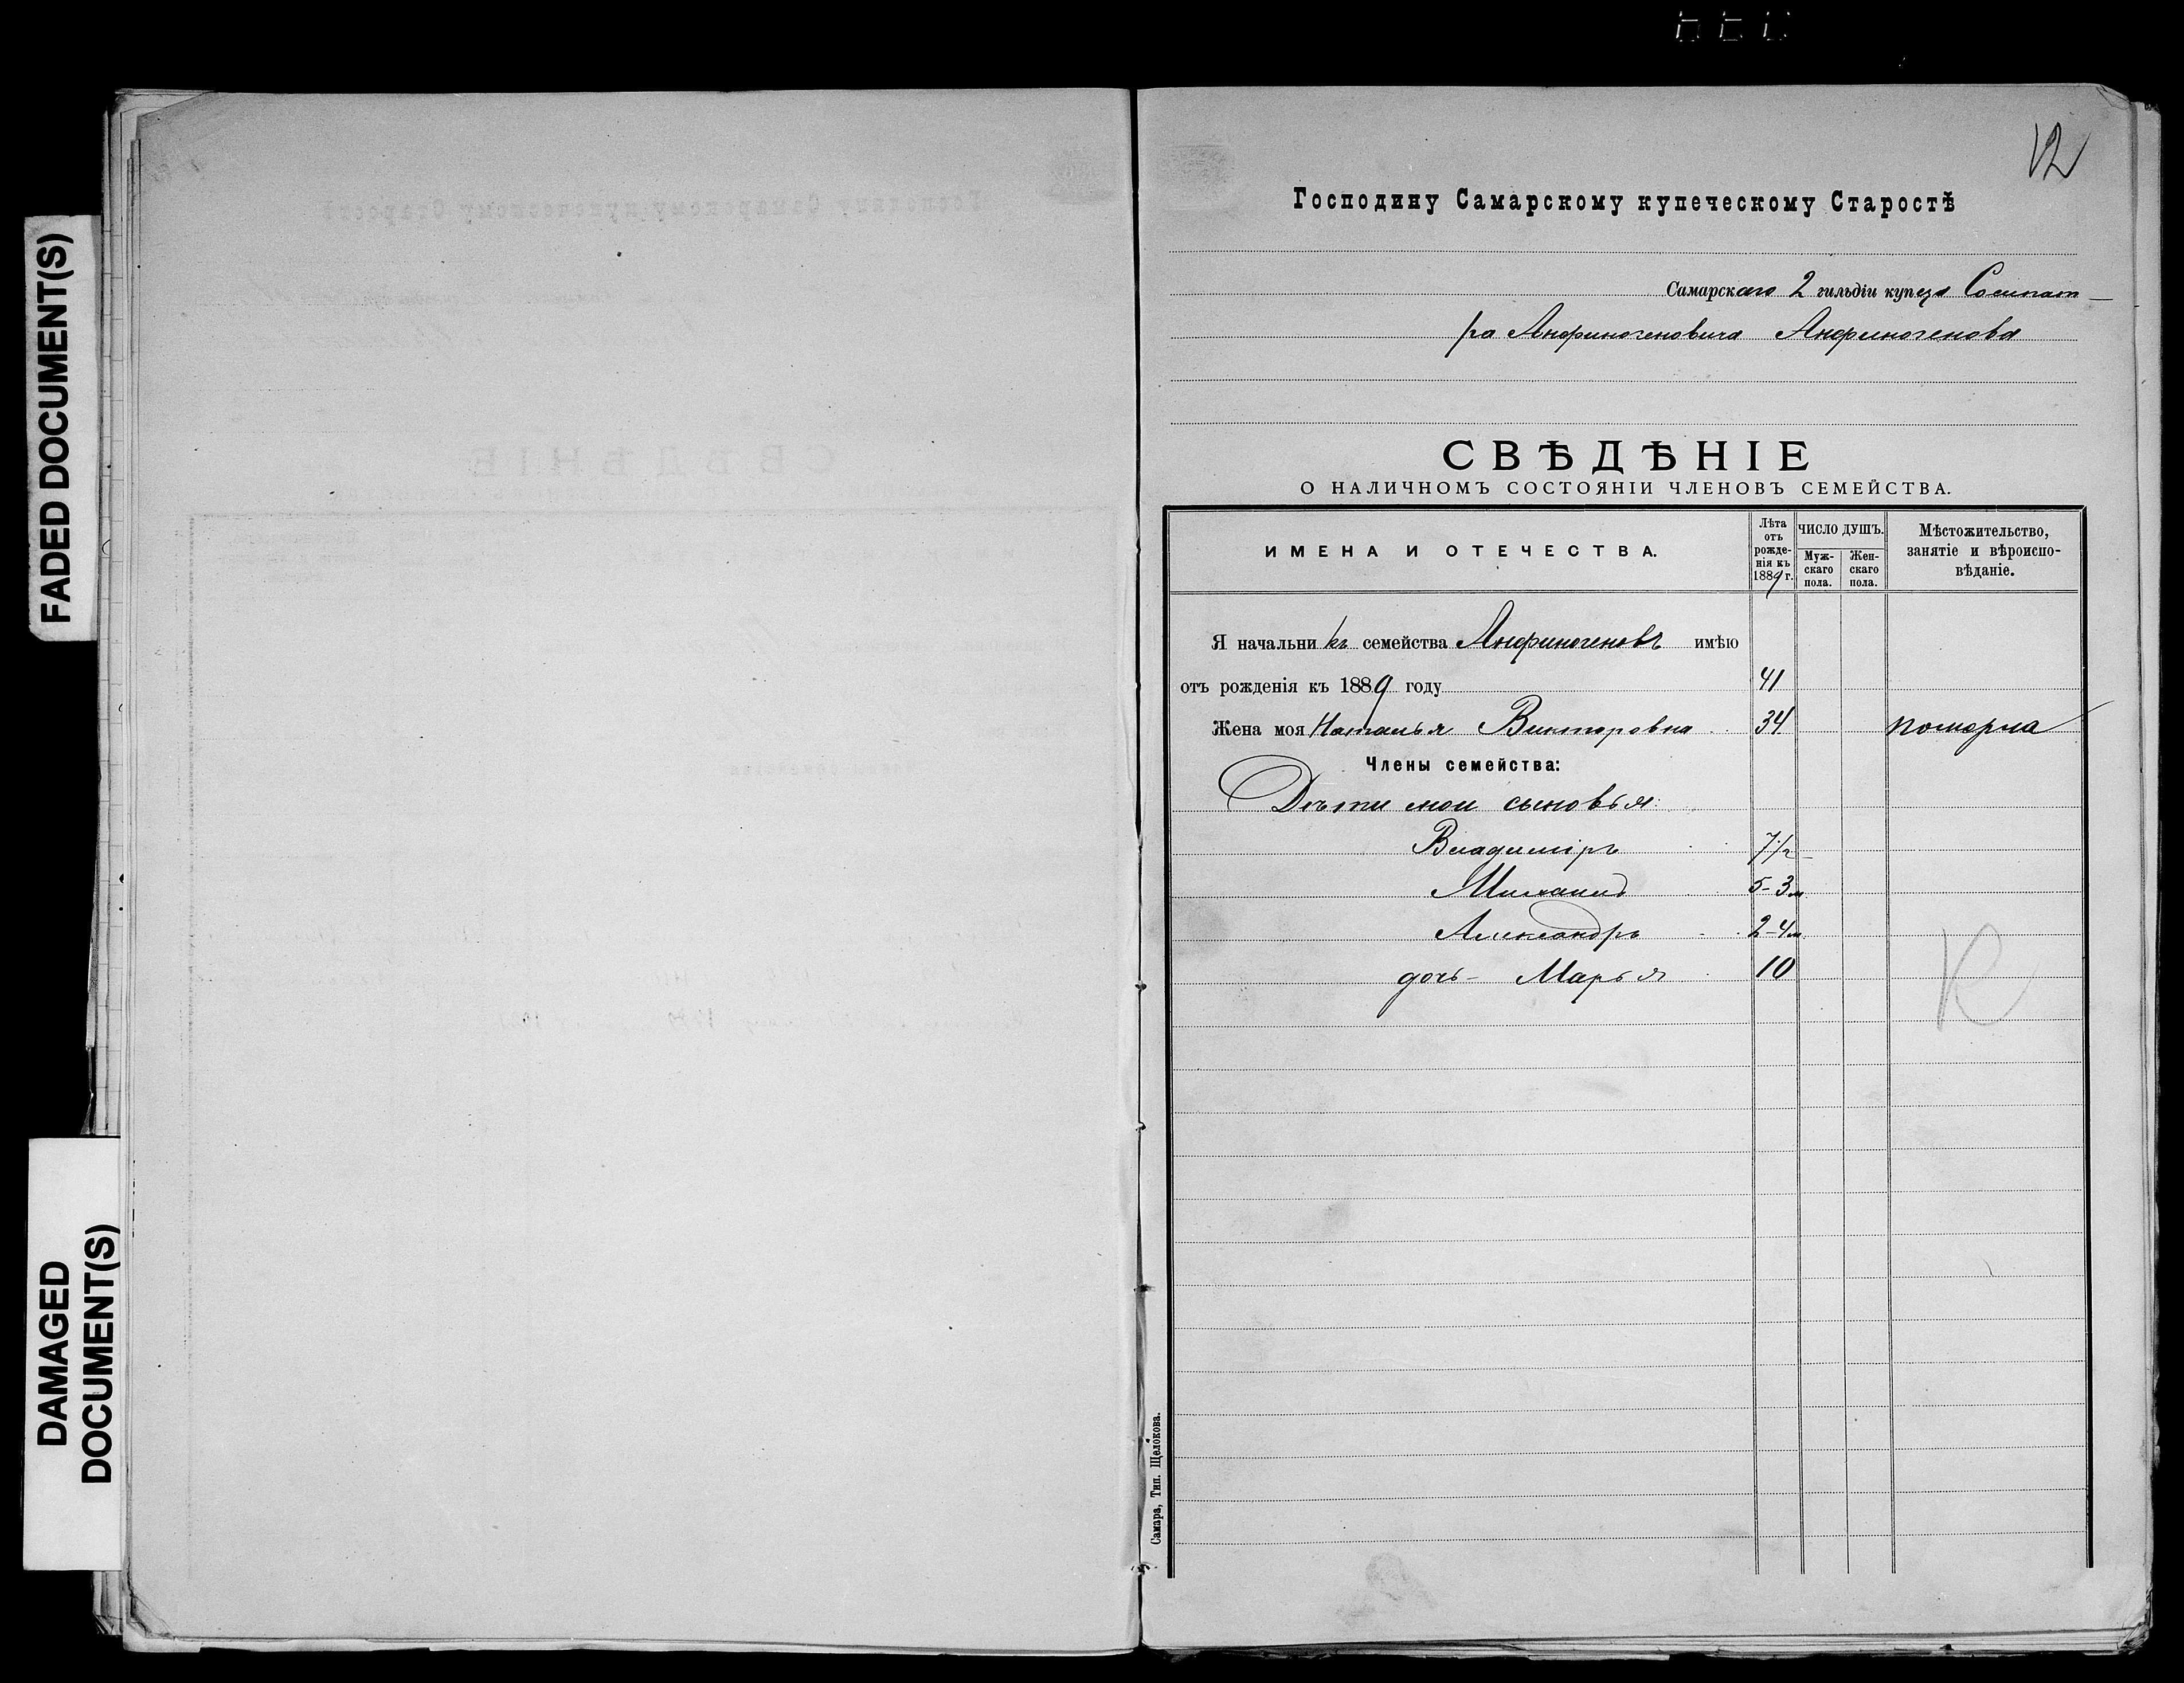 FADED DOCUMENT(S)
DAMAGED
DOCUMENT(S)
12
Господину Самарскому купеческому Старостѣ
Самарскаго 2 гильдіи купца Сосипат-
ра Анфиногеновича Анфиногенова
СВѢДѢНІЕ
О НАЛИЧНОМЪ СОСТОЯНІИ ЧЛЕНОВЪ СЕМЕЙСТВА.
ИМЕНА И ОТЕЧЕСТВА.
Лѣта
отъ
рожде-
нія къ
1889 г.
ЧИСЛО ДУШЪ.
Муж-
скаго
пола.
Жен-
скаго
пола.
Мѣстожительство,
занятіе и вѣроиспо-
вѣданіе.
Я начальникъ семейства Анфиногеновъ имѣю
отъ рожденія къ 1889 году 41
Жена моя Наталья Викторовна 34 померла
Члены семейства:
Дѣти мои сыновья:
Владиміръ 7 1/2
Михаилъ 5-3 м.
Александръ 2-4 м.
дочь- Марья 10
Самара, Тип. Щелокова.